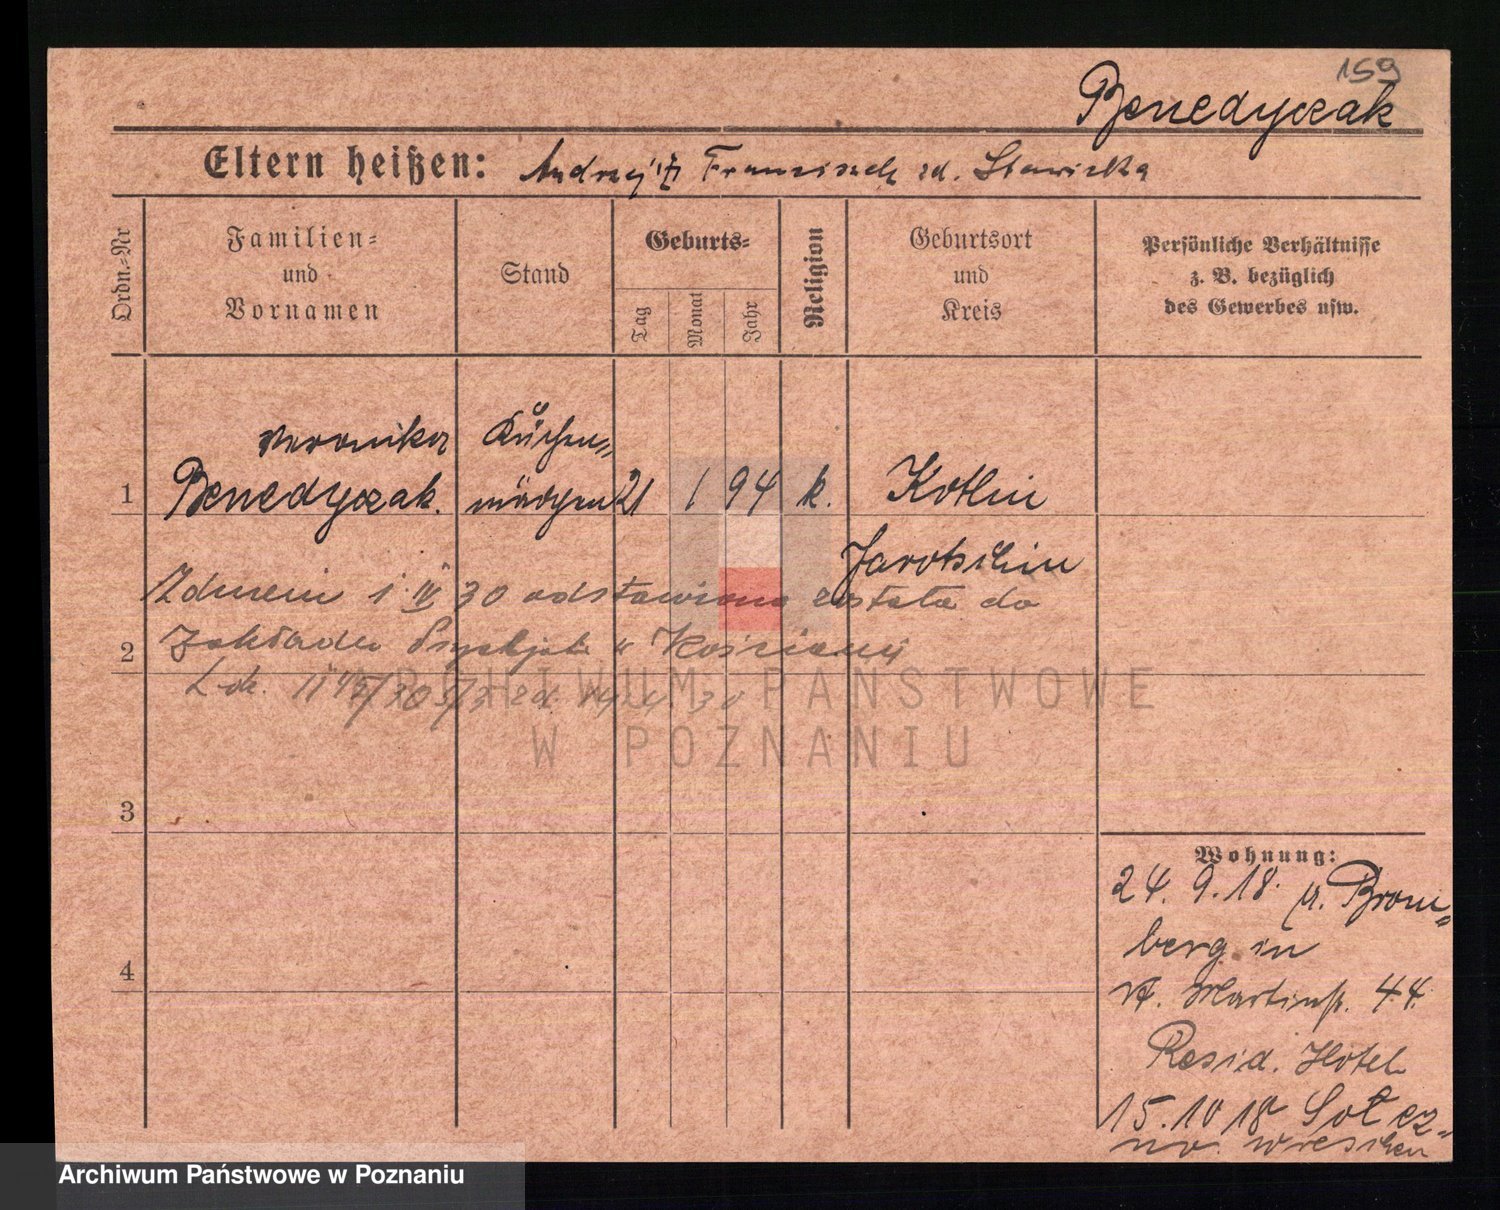 159
Benedyczak
Eltern heißen: Andrzej Franzisech Stawicka
Ordn.-Nr
Familien-
und
Vornamen
Stand
Geburts-
Tag
Monat
Jahr
Religion
Geburtsort
und
Kreis
Persönliche Verhältnisse
z. B. bezüglich
des Gewerbes usw.
Veronika
Küchen-
1 Benedyczak. mädchen 21 1 94 k. Kotlin
Jarotschin
1 IV 30 odstawiona została do
2 Zakładu Psychjatr. w
L. dz.
3
4
Wohnung:
24. 9. 18. v. Brom-
berg in
St. Martinstr. 44
Resid. Hotel
15. 10 18
Wreschen
ARCHIWUM PAŃSTWOWE
W POZNANIU
Archiwum Państwowe w Poznaniu